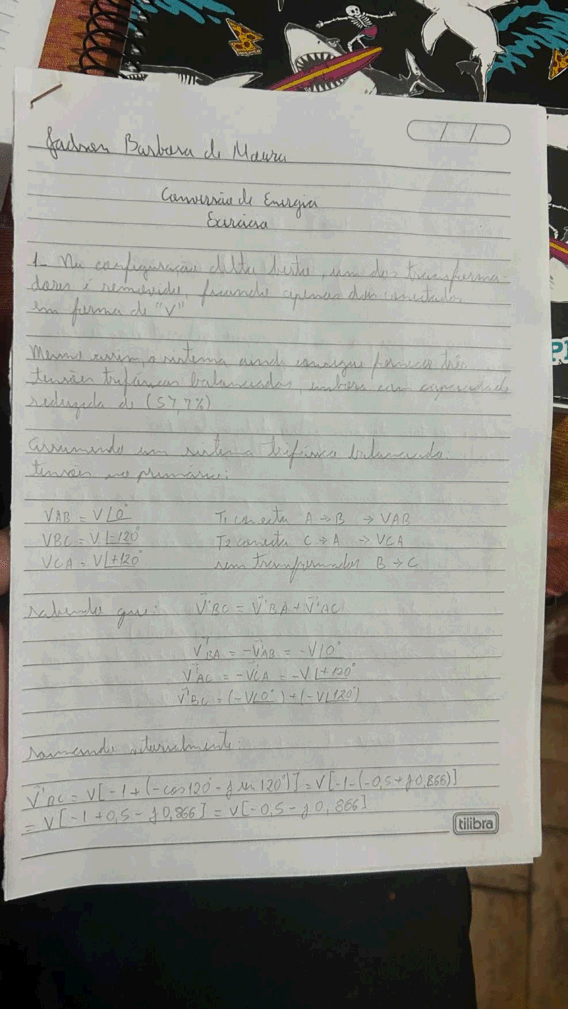 Jadson Barbosa de Moura
Conversão de Energia
Exercício
1- Na configuração delta aberto, um dos transforma-
dores é removido, ficando apenas dois conectados
em forma de "V"
Mesmo assim, o sistema ainda consegue fornecer três
tensões trifásicas balanceadas, embora com capacidade
reduzida de (57,7%)
Assumindo um sistema trifásico balanceado
tensões no primário:
VAB = V∠0° T1 conecta A → B → VAB
VBC = V∠-120° T2 conecta C → A → VCA
VCA = V∠+120° sem transformador B → C
sabendo que: V'BC = V'BA + V'AC
V'BA = -VAB = -V∠0°
V'AC = -VCA = -V∠+120°
V'BC = (-V∠0°) + (-V∠120°)
somando
V'BC = V[-1+(-cos120°-j sen120°)] = V[-1-(-0,5+j0,866)]
= V[-1+0,5-j0,866] = V[-0,5-j0,866]
tilibra